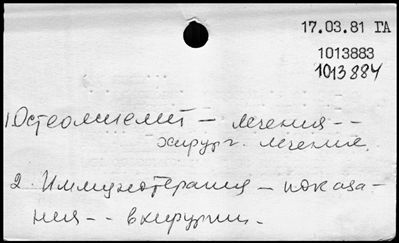 17.03.81 ГА
1013883
1013884
1) Остеомиелит – лечения --
хирург. лечение.
2. Иммунотерапия – показа-
ния -- в хирургии.